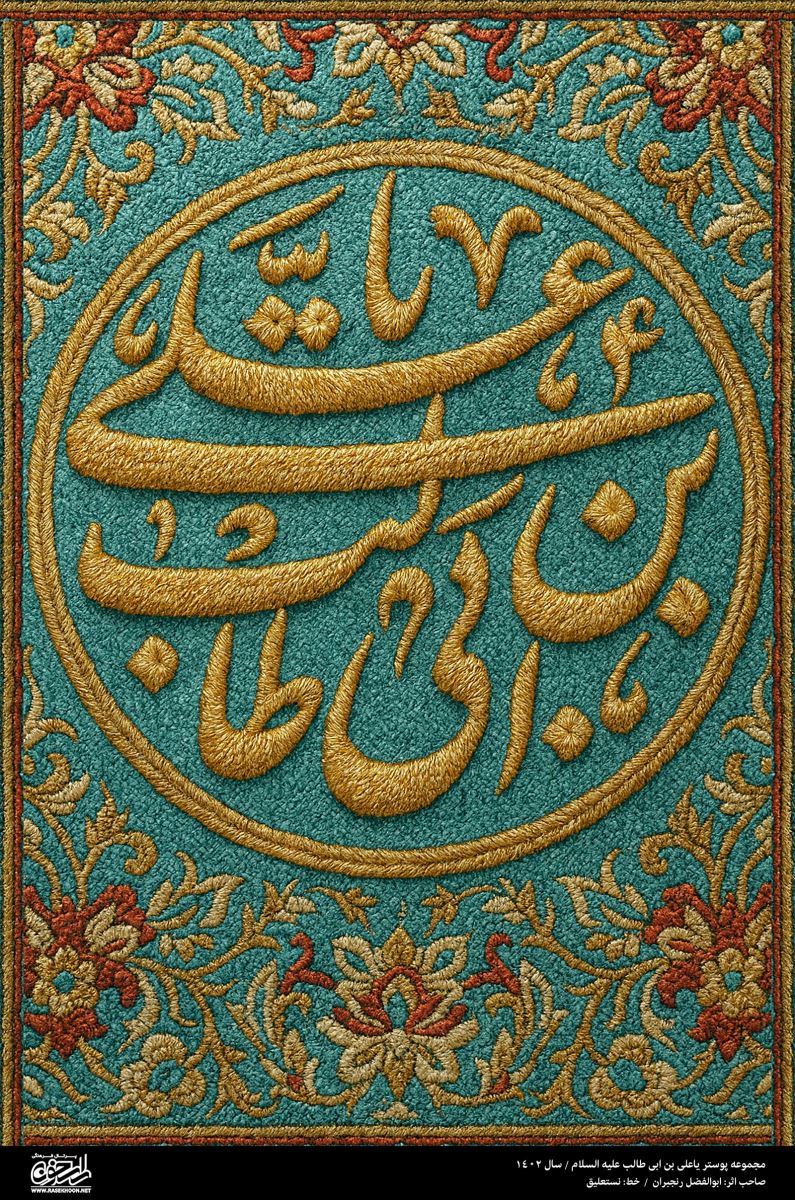 یا علی
بن ابی طالب
مجموعه پوستر یاعلی بن ابی طالب علیه السلام / سال ۱۴۰۲
صاحب اثر: ابوالفضل رنجبران / خط: نستعلیق
پرتال فرهنگی
راسخون
WWW.RASEKHOON.NET